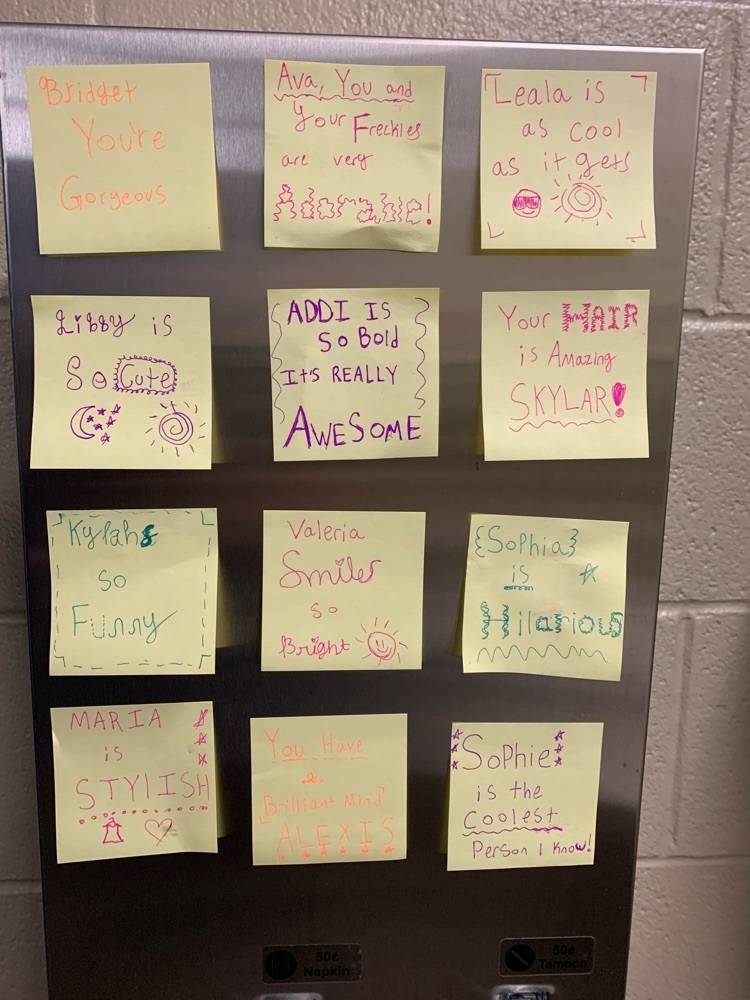 Bridget
You're
Gorgeous
Ava, You and
Your Freckles
are very
Adorable!
Leala is
as cool
as it gets
Libby is
So Cute
ADDI IS
So Bold
It's REALLY
AWESOME
Your HAIR
is Amazing
SKYLAR!
Kylahs
so
Funny
Valeria
Smiles
so
Bright
{Sophia}
is
Hilarious
MARIA
is
STYLISH
You Have
a
Brilliant Mind
ALEXIS
Sophie
is the
coolest
Person I Know!
50¢
Napkin
50¢
Tampon